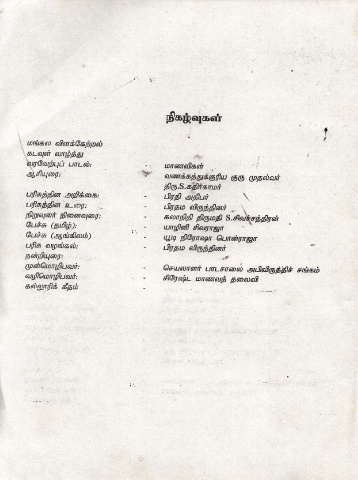 நிகழ்வுகள்
மங்கல விளக்கேற்றல்
கடவுள் வாழ்த்து
வரவேற்புப் பாடல்: - மாணவிகள்
ஆசியுரை: - வணக்கத்துக்குரிய குரு முதல்வர்
திரு.S.கதிர்காமர்
பரிசுத்தின அறிக்கை: - பிரதி அதிபர்
பரிசுத்தின உரை: - பிரதம விருந்தினர்
நிறுவுனர் நினைவுரை: - கலாநிதி திருமதி S.சிவச்சந்திரன்
பேச்சு (தமிழ்): - யாழினி சிவராஜா
பேச்சு (ஆங்கிலம்) - யூடி நிரோஷா பொன்ராஜா
பரிசு வழங்கல்: - பிரதம விருந்தினர்
நன்றியுரை:
முன்மொழிபவர்: - செயலாளர் பாடசாலை அபிவிருத்திச் சங்கம்
வழிமொழிபவர்: - சிரேஷ்ட மாணவத் தலைவி
கல்லூரிக் கீதம் -